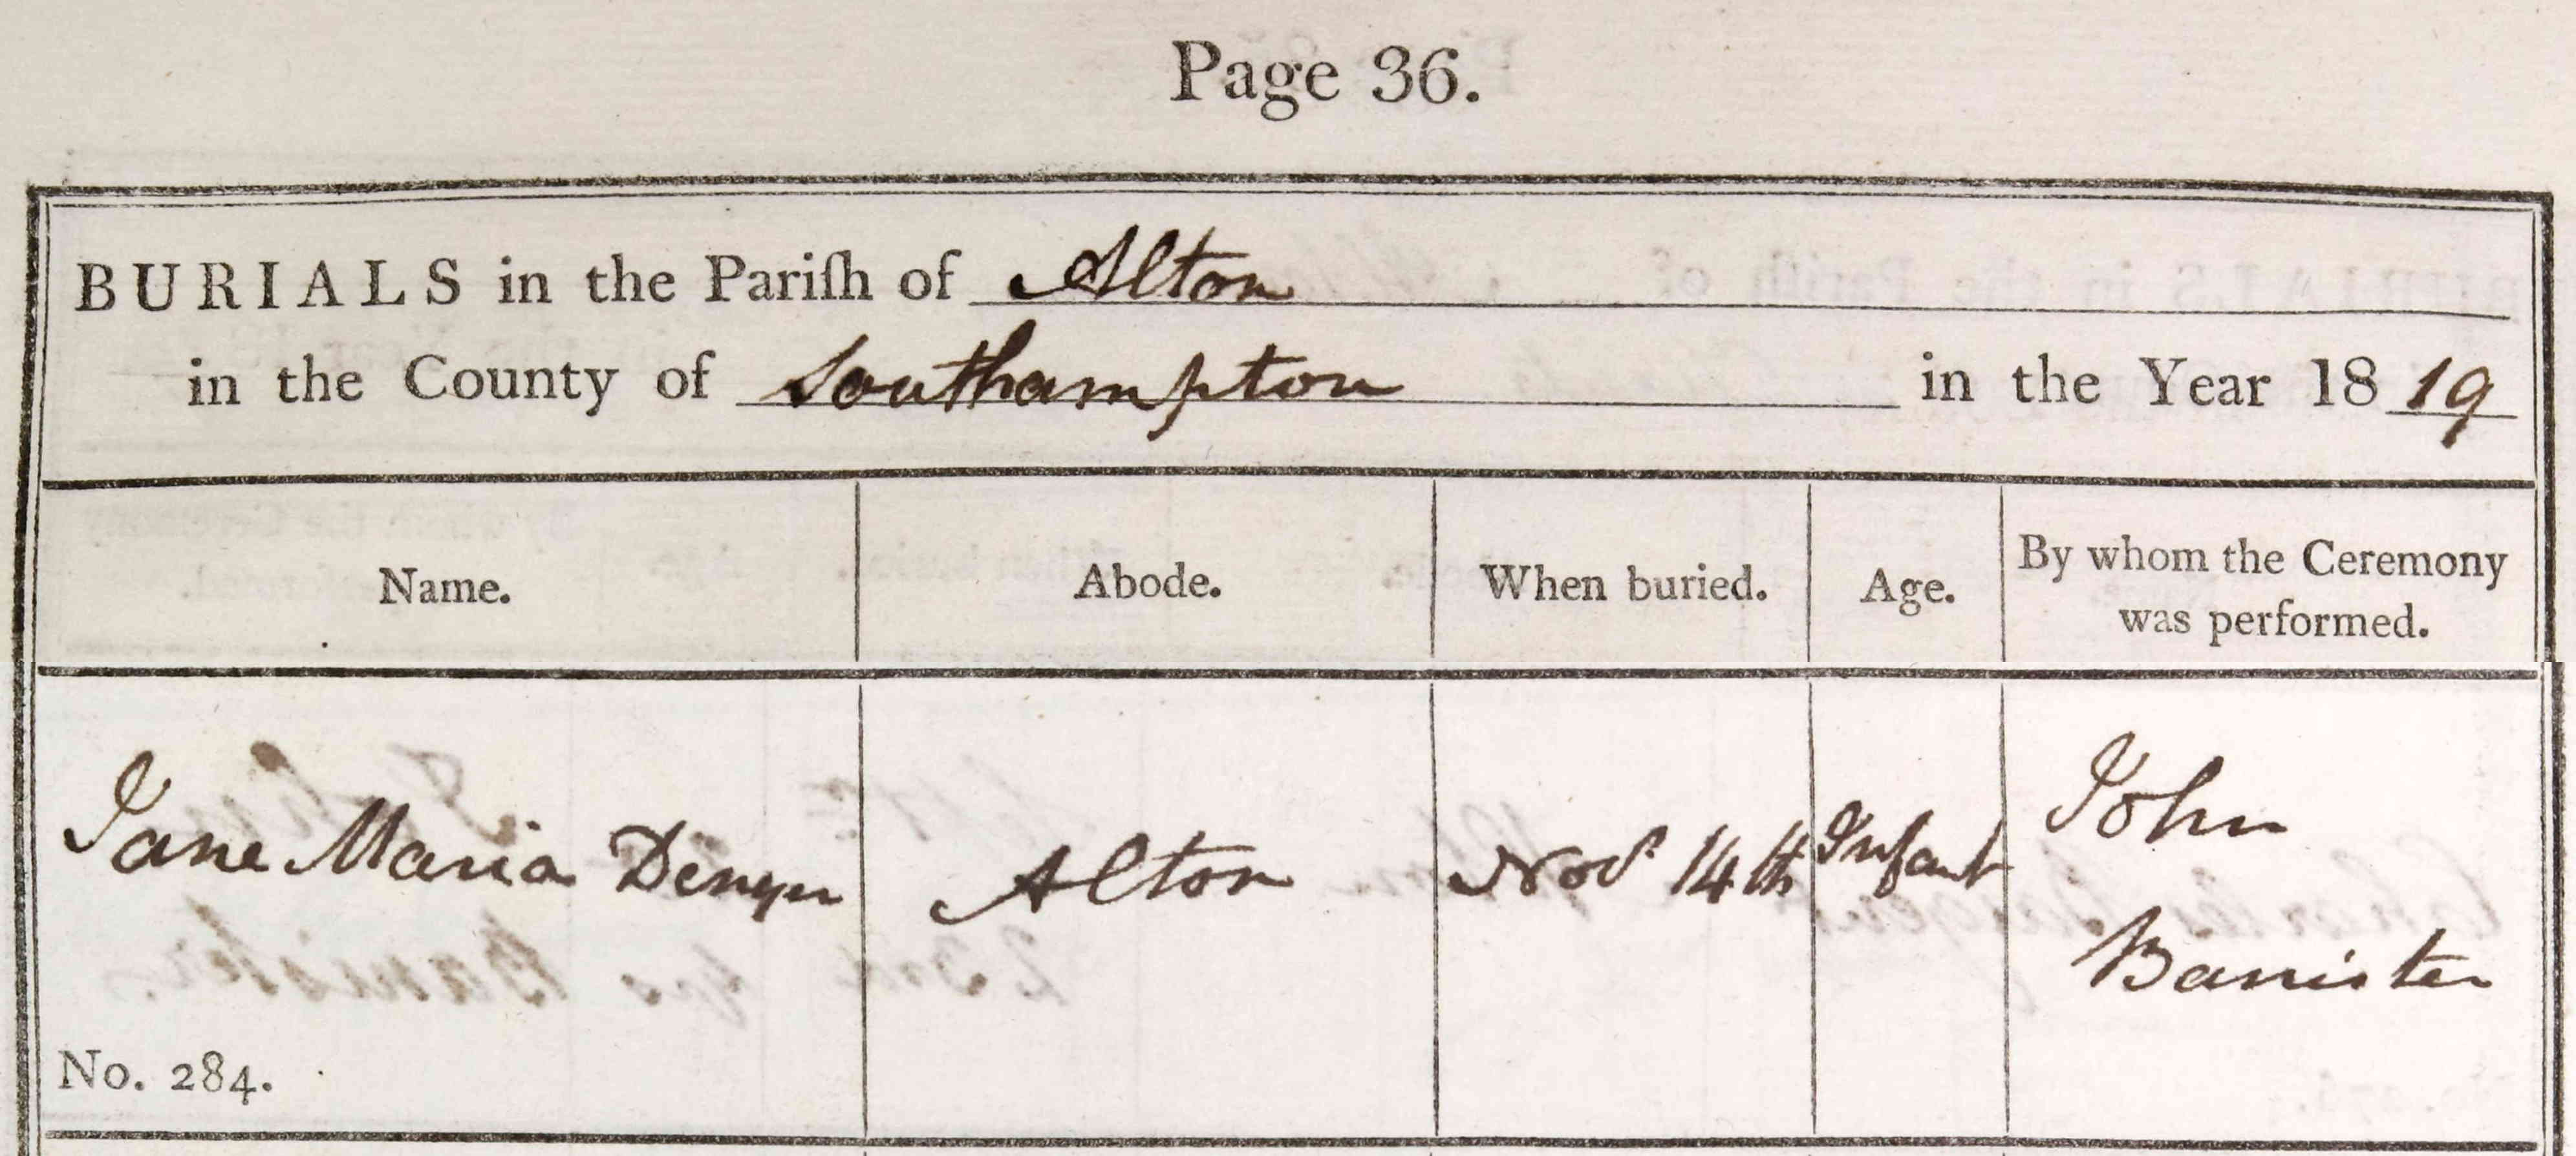 Page 36.
BURIALS in the Pariſh of Alton
in the County of Southampton in the Year 1819
Name.
Abode.
When buried.
Age.
By whom the Ceremony
was performed.
Jane Maria Denyer
Alton
Novr 14th
Infant
John
Banister
No. 284.